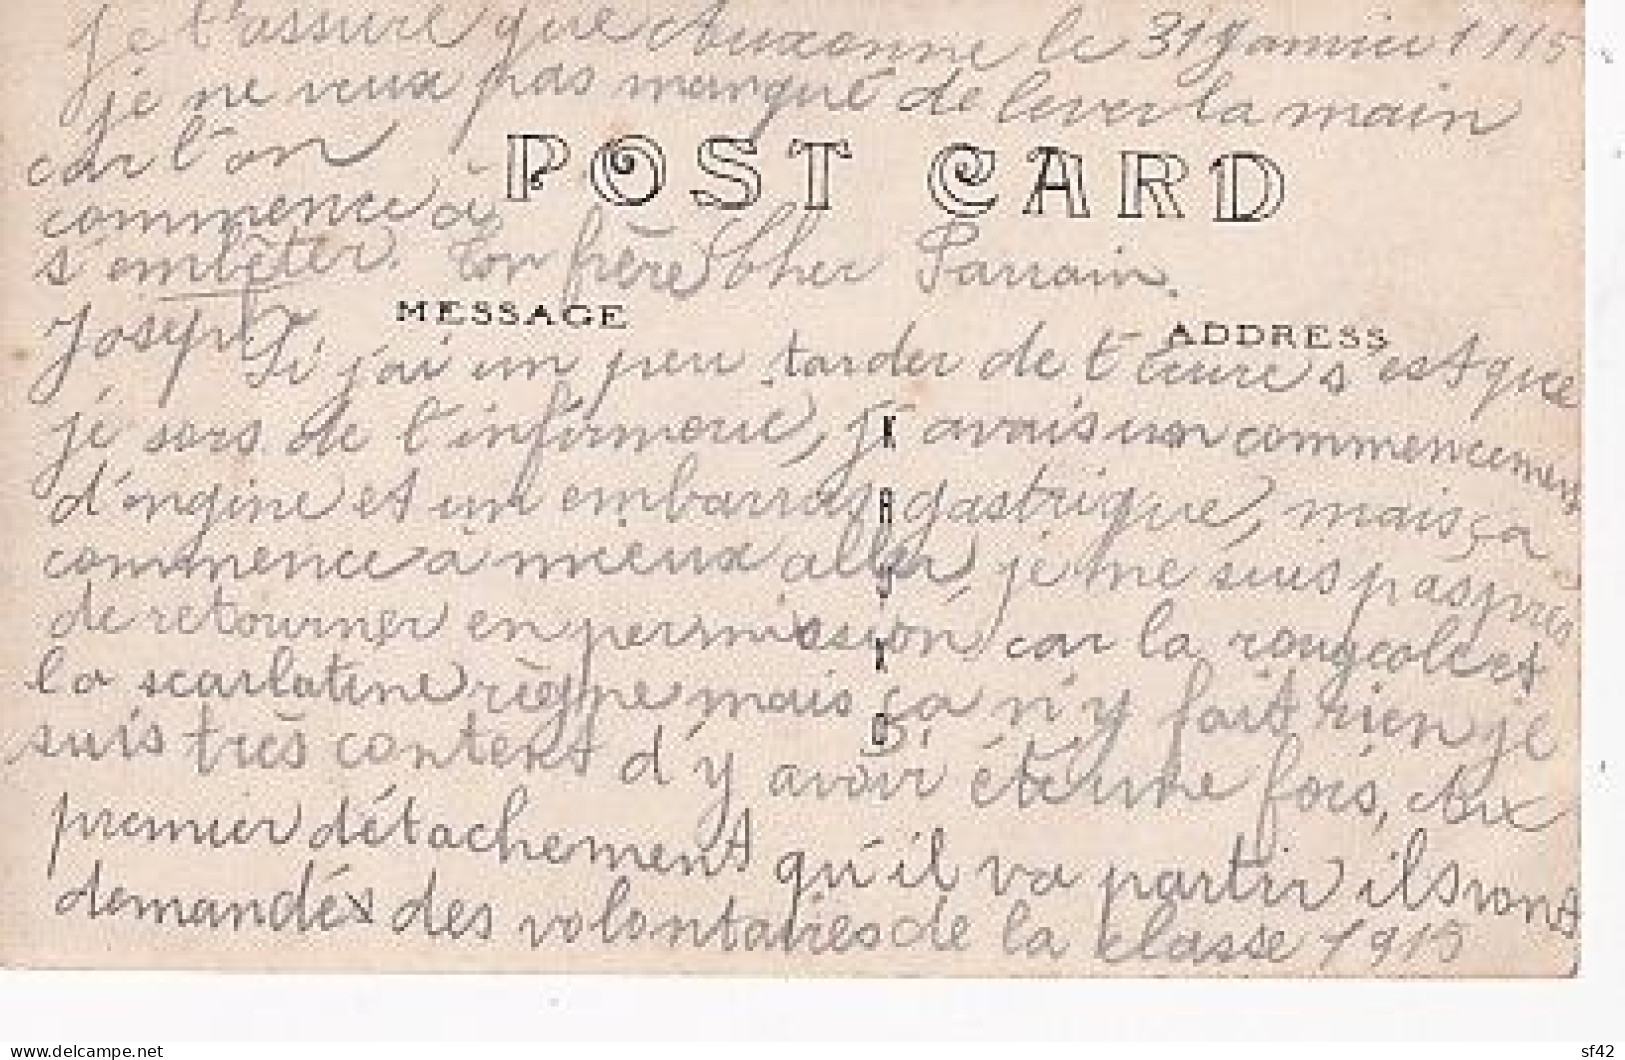 Je t'assure que Auxonne le 31 Janvier 1915
je ne veux pas manqué de lever la main
car l'on
POST CARD
commence à
s'embêter. Ton frère Cher Parrain.
Joseph
MESSAGE
ADDRESS
Si j'ai un peu tarder de t'écrire s'est que
je sors de l'infirmerie, j'avais un commencement
d'angine et un embarras gastrique, mais ça
commence à mieux aller, je ne suis pas près
de retourner en permission car la rougeole et
la scarlatine règne mais ça n'y fait rien je
suis très content d'y avoir été une fois, Aux
premier détachement qu'il va partir ils vont
demandés des volontaires de la classe 1915
delcampe.net
sf42